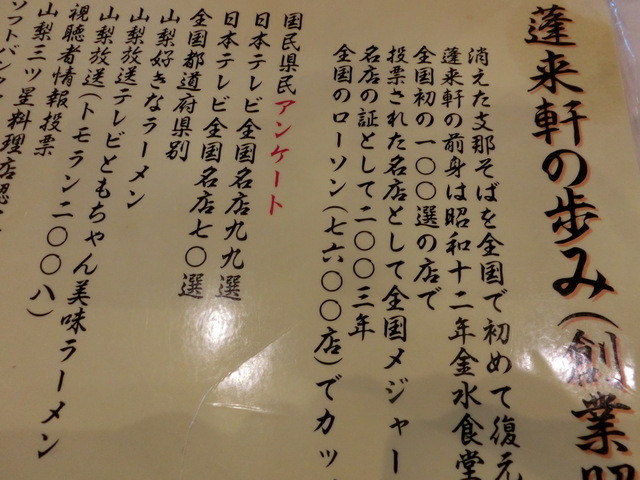 蓬来軒の歩み(創業昭
消えた支那そばを全国で初めて復元
蓬来軒の前身は昭和十二年金水食堂
全国初の一〇〇選の店で
投票された名店として全国メジャー
名店の証として二〇〇三年
全国のローソン(七六〇〇店)でカッ
国民県民アンケート
日本テレビ全国名店九九選
日本テレビ全国名店七〇選
全国都道府県別
山梨好きなラーメン
山梨放送テレビともちゃん美味ラーメン
山梨放送(トモラン二〇〇八)
視聴者情報投票
山梨三ツ星料理店認
ソフトバンク